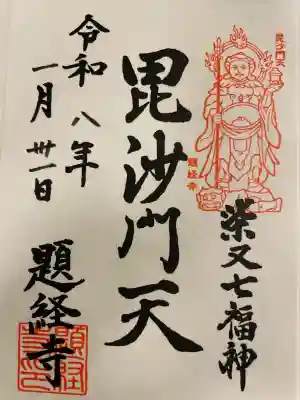 毘沙門天
題経寺
柴又七福神
毘沙門天
令和八年
一月卅一日
題経寺